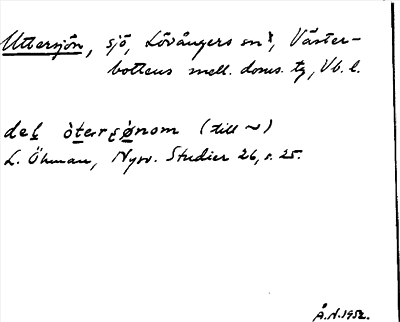 Uttersjön, sjö, Lövångers sn, Väster-
bottens mell. doms. tg, Vb. l.
(till ~)
L. Öhman, Nysv. Studier 26, s. 25.
Å.N.1952.